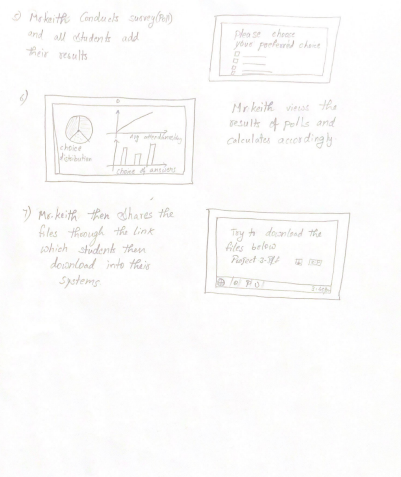 5) Mr.keith Conducts survey(Poll)
and all students add
their results
please choose
your preferred choice
6)
choice
distribution
avg attendance/day
choice of answers
Mr.keith views the
results of polls and
calculates accordingly
7) Mr.keith then Shares the
files through the link
which students then
download into their
Systems
Try to download the
files below